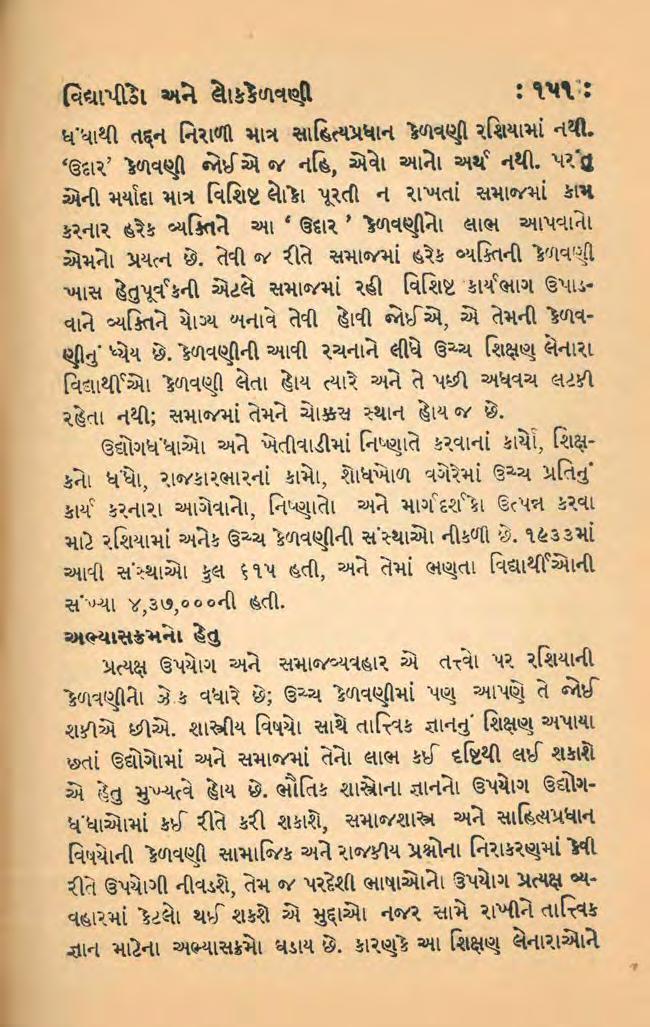 વિદ્યાપીઠો અને લોકકેળવણી : ૧૫૧ :
ધંધાથી તદ્દન નિરાળી માત્ર સાહિત્યપ્રધાન કેળવણી રશિયામાં નથી.
‘ઉદાર’ કેળવણી જોઈએ જ નહિ, એવો આનો અર્થ નથી. પરંતુ
એની મર્યાદા માત્ર વિશિષ્ટ લોકો પૂરતી ન રાખતાં સમાજમાં કામ
કરનાર હરેક વ્યક્તિને આ ‘ ઉદાર ’ કેળવણીનો લાભ આપવાનો
એમનો પ્રયત્ન છે. તેવી જ રીતે સમાજમાં હરેક વ્યક્તિની કેળવણી
ખાસ હેતુપૂર્વકની એટલે સમાજમાં રહી વિશિષ્ટ કાર્યભાગ ઉપાડ-
વાને વ્યક્તિને યોગ્ય બનાવે તેવી હોવી જોઈએ, એ તેમની કેળવ-
ણીનું ધ્યેય છે. કેળવણીની આવી રચનાને લીધે ઉચ્ચ શિક્ષણ લેનારા
વિદ્યાર્થીઓ કેળવણી લેતા હોય ત્યારે અને તે પછી અધવચ લટકી
રહેતા નથી; સમાજમાં તેમને ચોક્કસ સ્થાન હોય જ છે.
ઉદ્યોગધંધાઓ અને ખેતીવાડીમાં નિષ્ણાતે કરવાનાં કાર્યો, શિક્ષ-
કનો ધંધો, રાજકારભારનાં કામો, શોધખોળ વગેરેમાં ઉચ્ચ પ્રતિનું
કાર્ય કરનારા આગેવાનો, નિષ્ણાતો અને માર્ગદર્શકો ઉત્પન્ન કરવા
માટે રશિયામાં અનેક ઉચ્ચ કેળવણીની સંસ્થાઓ નીકળી છે. ૧૯૩૩માં
આવી સંસ્થાઓ કુલ ૬૧૫ હતી, અને તેમાં ભણતા વિદ્યાર્થીઓની
સંખ્યા ૪,૩૭,૦૦૦ની હતી.
અભ્યાસક્રમનો હેતુ
પ્રત્યક્ષ ઉપયોગ અને સમાજવ્યવહાર એ તત્ત્વો પર રશિયાની
કેળવણીનો ઝોક વધારે છે; ઉચ્ચ કેળવણીમાં પણ આપણે તે જોઈ
શકીએ છીએ. શાસ્ત્રીય વિષયો સાથે તાત્ત્વિક જ્ઞાનનું શિક્ષણ અપાયા
છતાં ઉદ્યોગોમાં અને સમાજમાં તેનો લાભ કઈ દૃષ્ટિથી લઈ શકાશે
એ હેતુ મુખ્યત્વે હોય છે. ભૌતિક શાસ્ત્રોના જ્ઞાનનો ઉપયોગ ઉદ્યોગ-
ધંધાઓમાં કઈ રીતે કરી શકાશે, સમાજશાસ્ત્ર અને સાહિત્યપ્રધાન
વિષયોની કેળવણી સામાજિક અને રાજકીય પ્રશ્નોના નિરાકરણમાં કેવી
રીતે ઉપયોગી નીવડશે, તેમ જ પરદેશી ભાષાઓનો ઉપયોગ પ્રત્યક્ષ વ્ય-
વહારમાં કેટલો થઈ શકશે એ મુદ્દાઓ નજર સામે રાખીને તાત્ત્વિક
જ્ઞાન માટેના અભ્યાસક્રમો ઘડાય છે. કારણકે આ શિક્ષણ લેનારાઓને